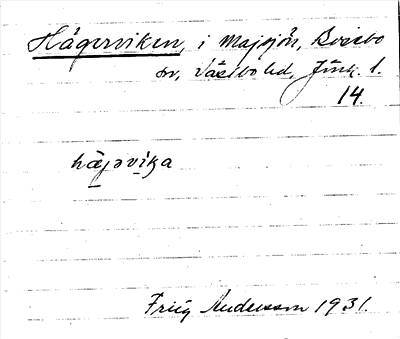 Hägerviken, i Majsjön, Bosebo
sn, Västbo hd, Jönk. l.
14.
häjəvika
Frig Andersson 1931.